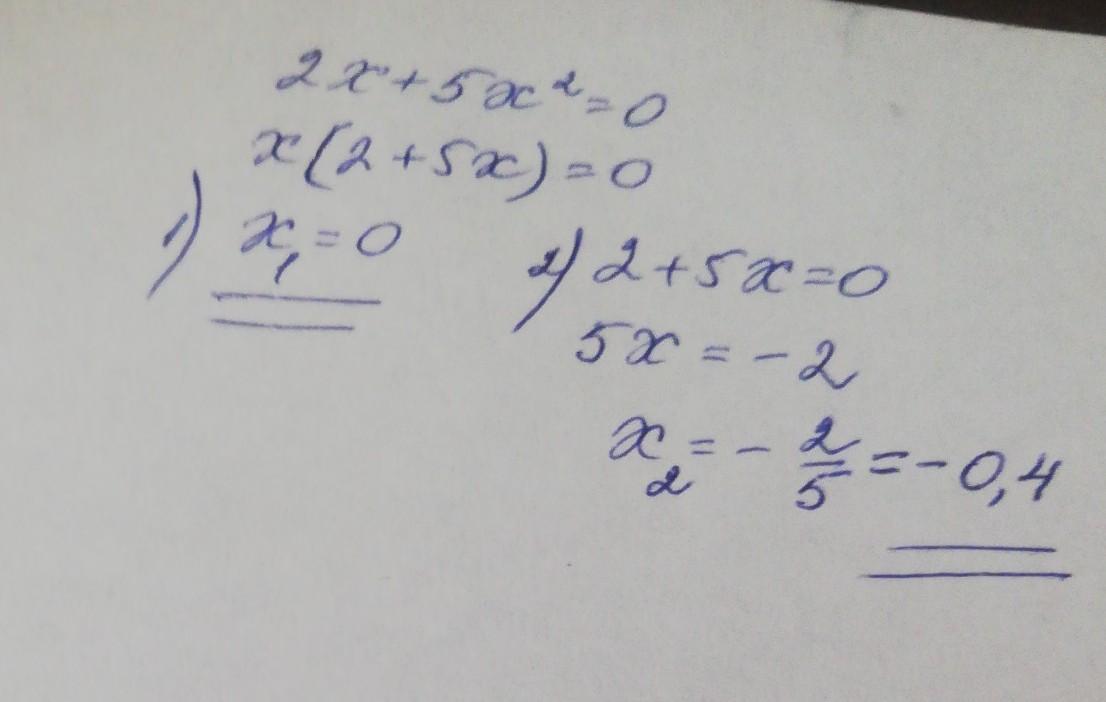 2x+5x²=0
x(2+5x)=0
1) x₁=0
2) 2+5x=0
5x=-2
x₂=-2/5=-0,4